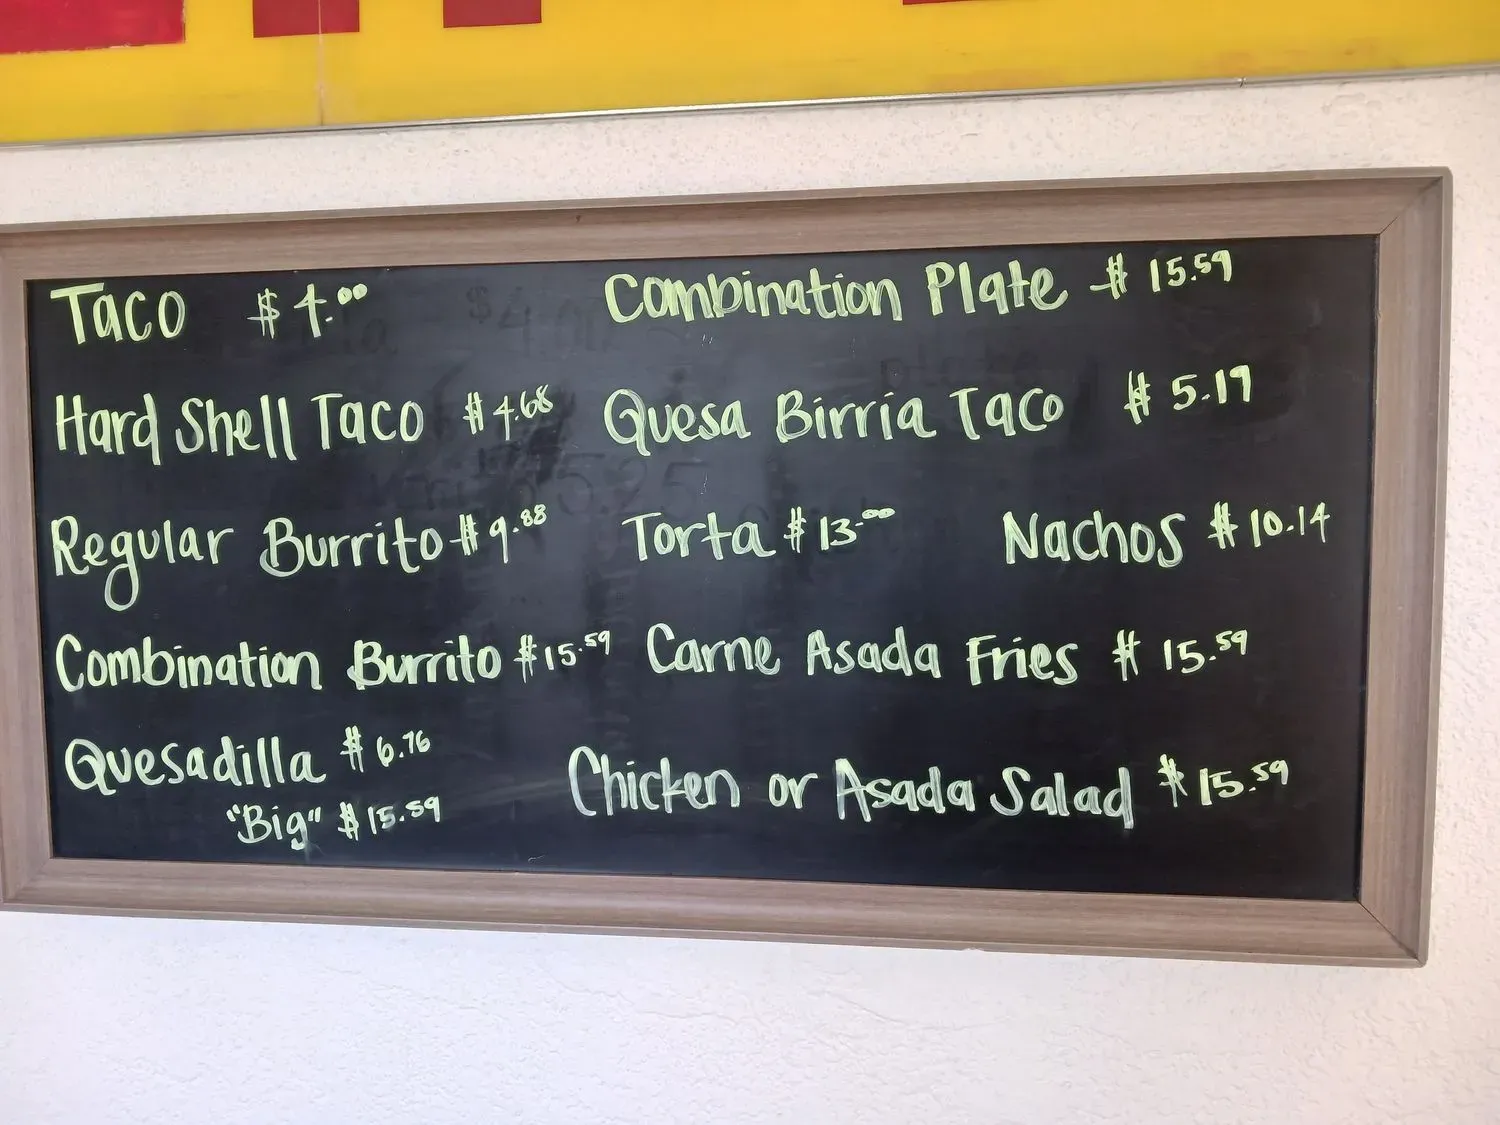 Taco $4.00
Combination Plate $15.59
Hard Shell Taco $4.68
Quesa Birria Taco $5.19
Regular Burrito $9.88
Torta $13.00
Nachos $10.14
Combination Burrito $15.59
Carne Asada Fries $15.59
Quesadilla $6.76
"Big" $15.59
Chicken or Asada Salad $15.59